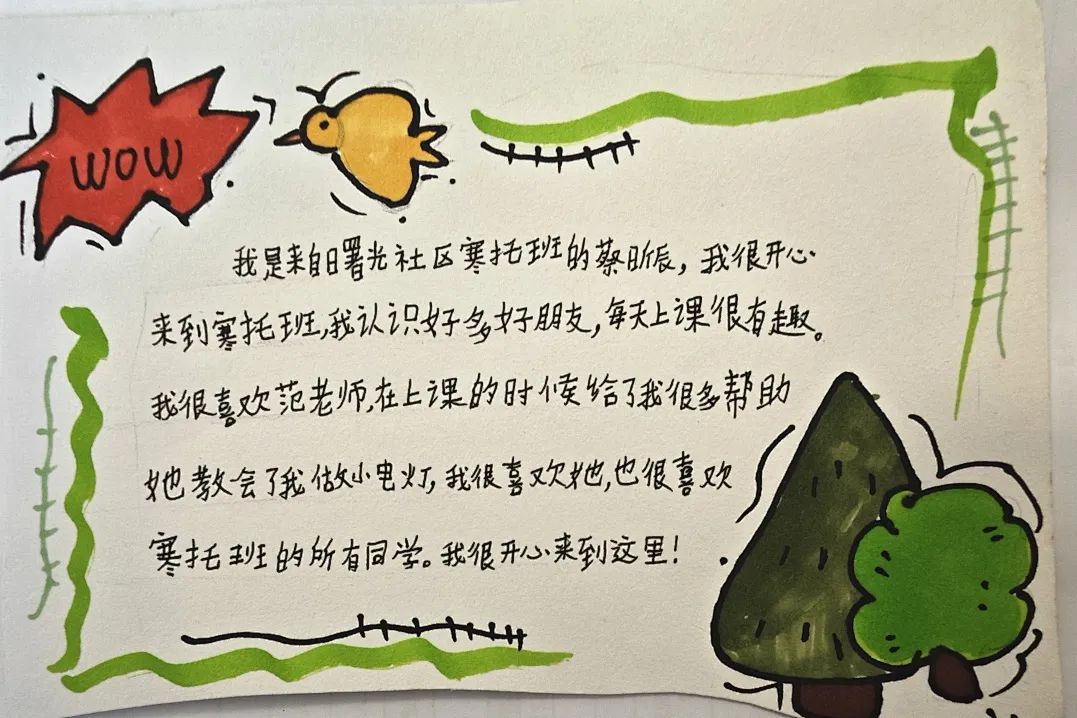 WOW
我是来自曙光社区寒托班的蔡昕辰，我很开心
来到寒托班，我认识好多好朋友，每天上课很有趣。
我很喜欢范老师，在上课的时候给了我很多帮助
她教会了我做小电灯，我很喜欢她，也很喜欢
寒托班的所有同学。我很开心来到这里！